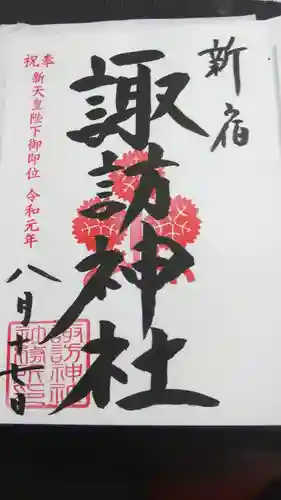 新宿
諏訪神社
奉祝
新天皇陛下御即位 令和元年
八月十七日